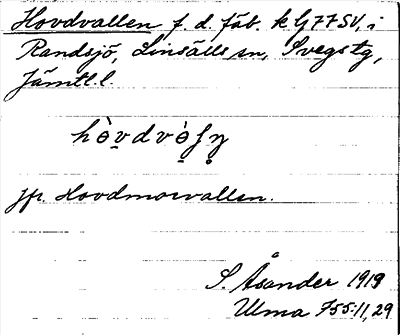 Hovdvallen f. d. fäb. k G77SV, i
Randsjö, Linsälls sn, Svegs tg,
Jämtl. l.
jfr. Hovdmorvallen.
S. Åsander 1919
Ulma 755:11, 29